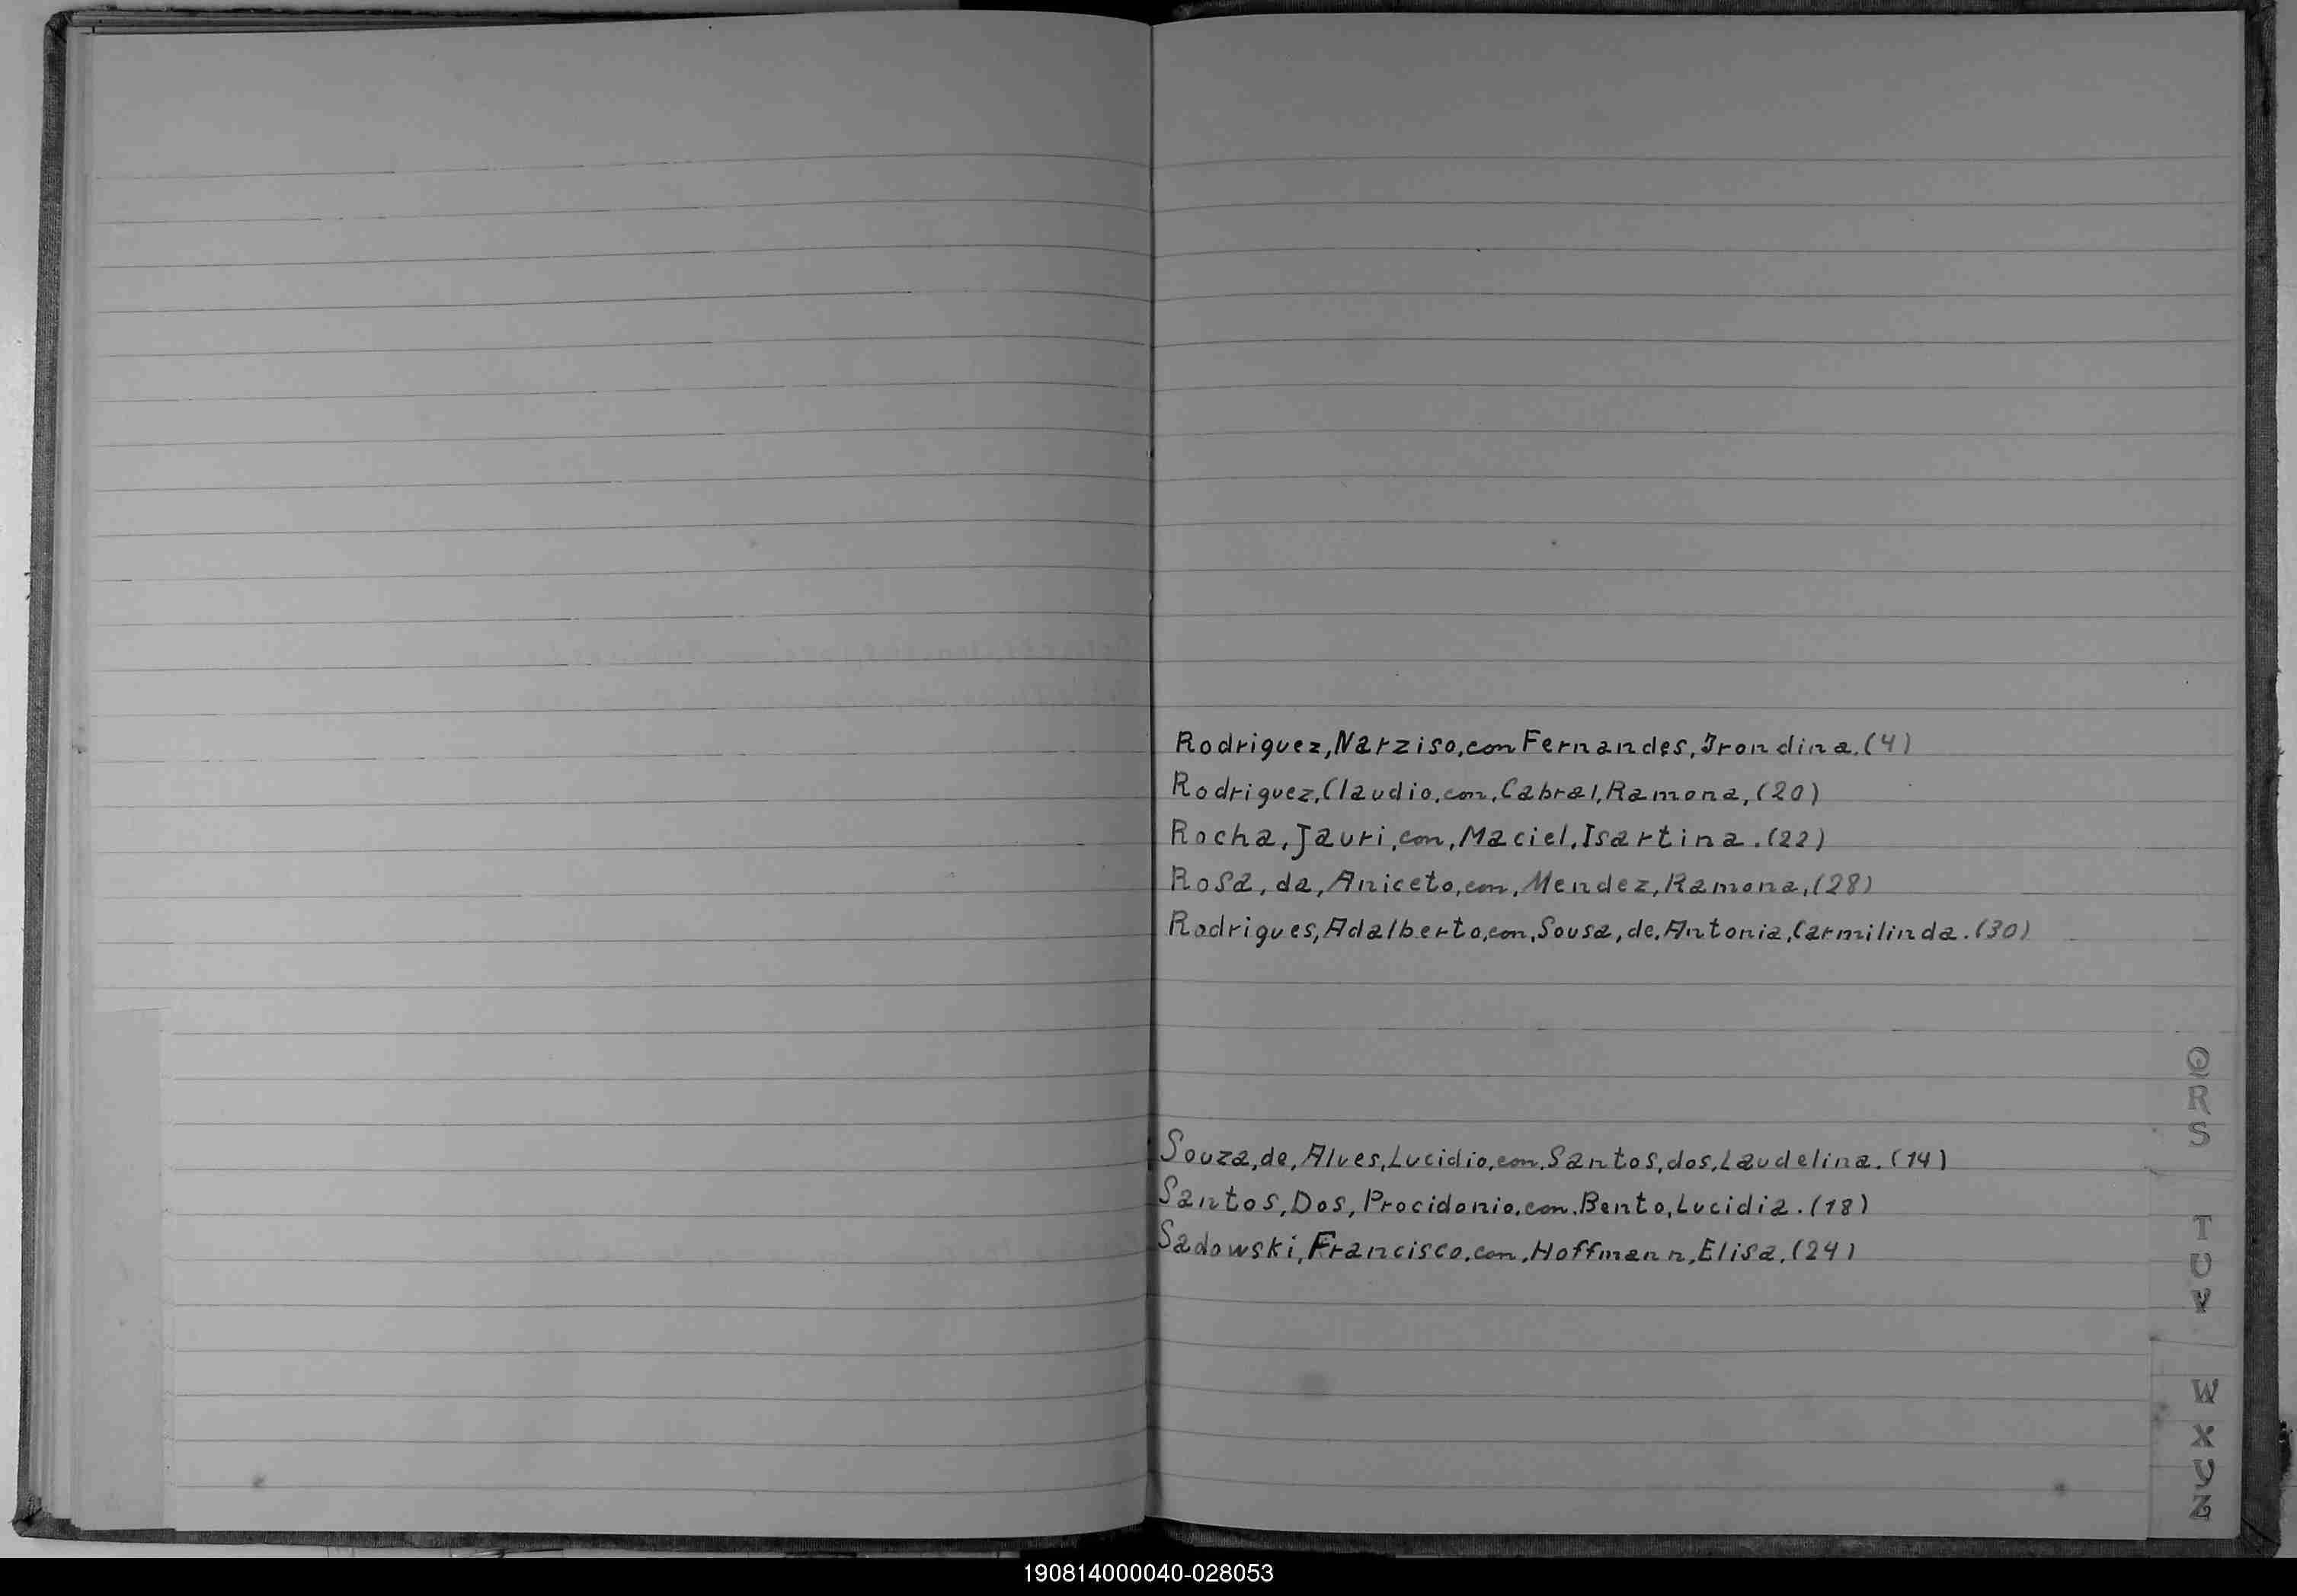 Rodriguez, Narziso, con Fernandes, Irondina. (4)
Rodriguez, Claudio, con, Cabral, Ramona, (20)
Rocha, Jauri, con, Maciel, Isartina. (22)
Rosa, da, Aniceto, con, Mendez, Ramona, (28)
Rodrigues, Adalberto, con, Sousa, de, Antonia, Carmilinda. (30)
Souza, de, Alves, Lucidio, con, Santos, dos, Laudelina. (14)
Santos, Dos, Procidonio, con, Bento, Lucidia. (18)
Sadowski, Francisco, con, Hoffmann, Elisa, (24)
Q
R
S
T
U
V
W
X
Y
Z
190814000040-028053